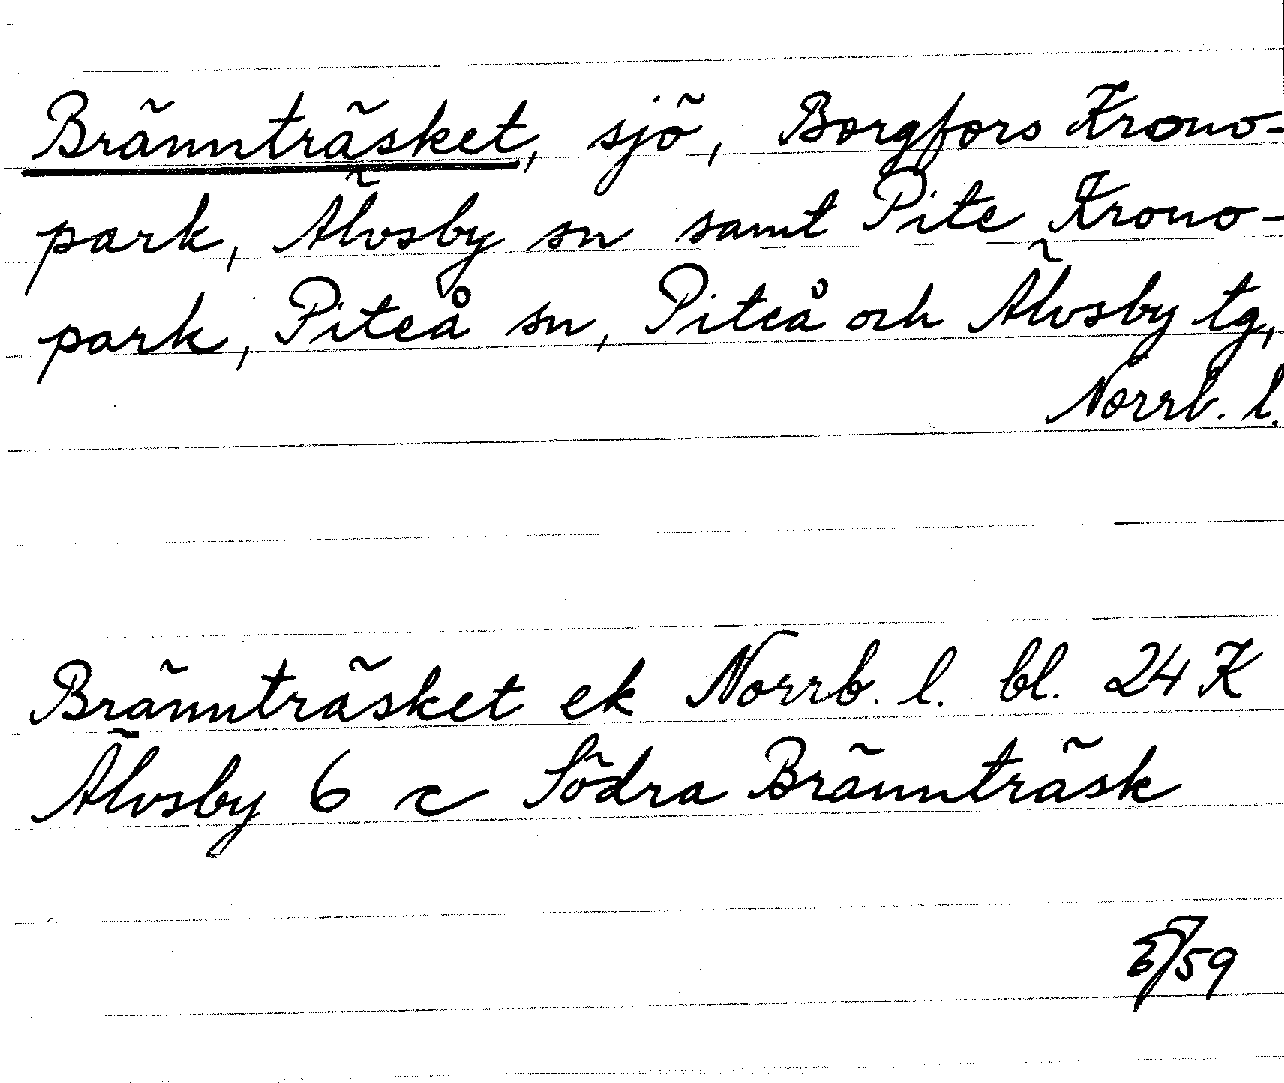 Brännträsket, sjö, Borgfors Krono-
park, Älvsby sn samt Pite Krono-
park, Piteå sn, Piteå och Älvsby tg,
Norrb. l.
Brännträsket ek Norrb. l. bl. 24 K
Älvsby 6 c Södra Brännträsk
/59